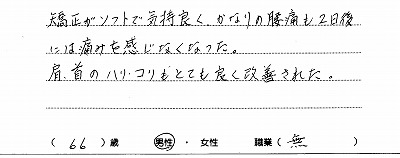 矯正がソフトで気持良く、かなりの腰痛も2日後
には痛みを感じなくなった。
肩、首のハリ・コリもとても良く改善された。
( 66 ) 歳 男性 ・ 女性 職業 ( 無 )